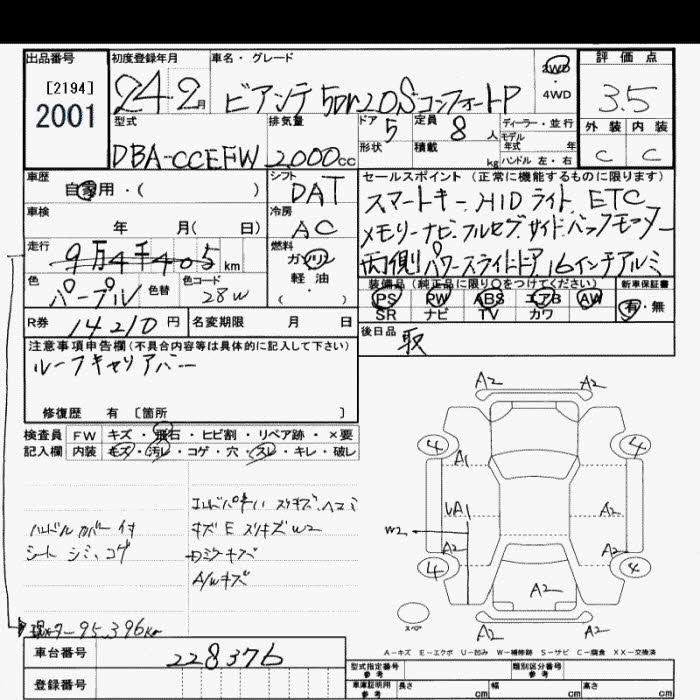 出品番号 初度登録年月 車名・グレード 2WD 評価点
[2194] 4WD
2001 24 2月 ビアンテ 5DR 20S コンフォートP 3.5
型式 排気量 ドア 5 定員 8人 ディーラー・並行 外装 内装
モデル年式 年式
DBA-CCEFW 2000cc 形状 積載 kg ハンドル 左・右 C C
車歴 シフト セールスポイント (正常に機能するものに限ります)
自家用・( ) DAT スマートキー HIDライト ETC
車検 冷房
年 月( 日) AC メモリーナビ フルセグ サイド・バックモニター
走行 燃料
9万4千405km ガソリン 両側パワースライドドア 16インチアルミ
色 色替 色コード 軽油 装備品 (純正品に限り○をつけてください) 新車保証書
パープル 28W ( ) PS PW ABS エアB AW 有・無
SR ナビ TV カワ
R券 14210円 名変期限 月 日 後日品 取
注意事項申告欄(不具合内容等は具体的に記入して下さい)
ルーフキャリアバー
修復歴 有 [箇所 ]
検査員 FW キズ・飛石・ヒビ割・リペア跡・×要
記入欄 内装 キズ・汚レ・コゲ・穴・スレ・キレ・破レ
A2 A2
4 4
A1
ハンドルカバー付
UA1 A2
シート シミ、コゲ キズE スリキズ W2
W2
A2 A2
A/Wキズ
4 4
A2
現メーター95,396km
スペア
A2 A2
A-キズ E-エクボ U-凹み W-補修跡 S-サビ C-腐食 XX-交換済
車台番号 228376
型式指定番号 参考 類別区分番号 参考
登録番号 車庫証明用 参考 長さ cm 幅 cm 高さ cm